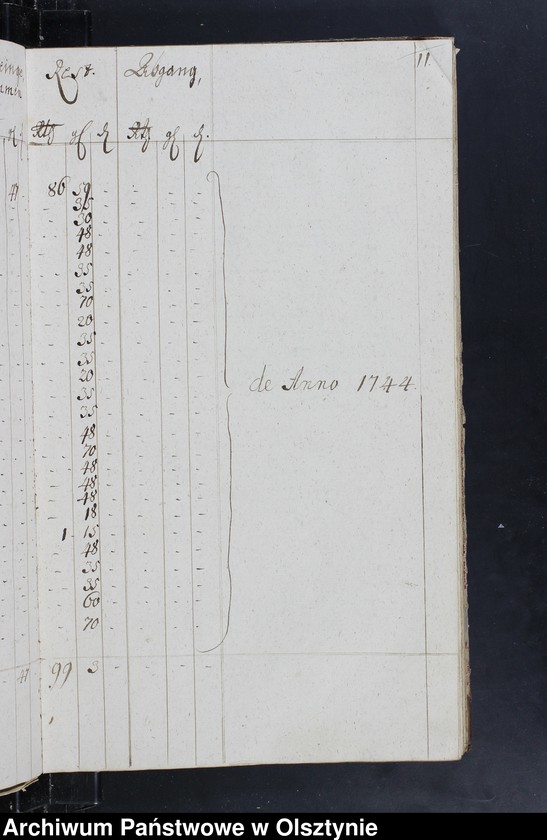 11
Rest. Abgang,
47 86 59 - - - -
- 35 - - - -
- 30 - - - -
- 48 - - - -
- 48 - - - -
- 35 - - - -
- 35 - - - -
- 70 - - - -
- 20 - - - -
- 35 - - - -
- 35 - - - -
- 20 - - - -
de Anno 1744
- 35 - - - -
- 35 - - - -
- 48 - - - -
- 70 - - - -
- 48 - - - -
- 48 - - - -
- 48 - - - -
- 18 - - - -
1 15 - - - -
- 48 - - - -
- 35 - - - -
- 35 - - - -
- 60 - - - -
- 70 - - - -
47 99 3 - - - -
Archiwum Państwowe w Olsztynie